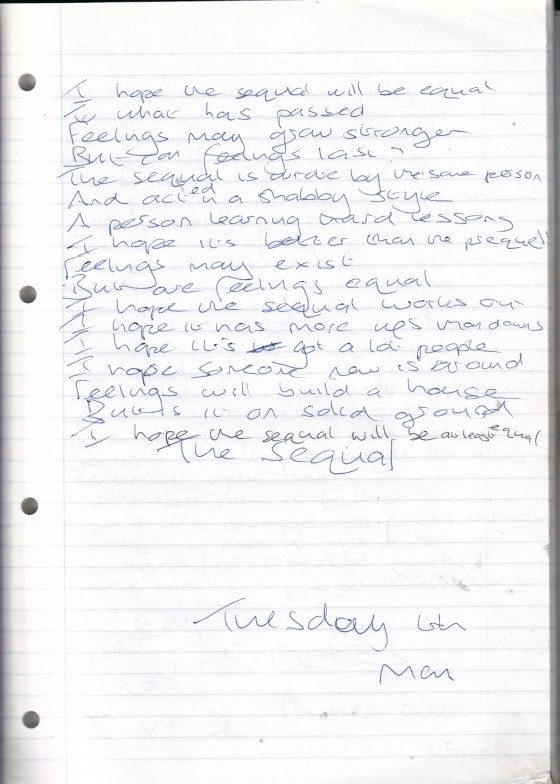 I hope the sequal will be equal
To what has passed
Feelings may grow stronger
But can feelings last?
The sequal is wrote by the same person
And acted in a shabby style
A person learning hard lessons
I hope it's better than the prequel
Feelings may exist
But are feelings equal
I hope the sequal works out
I hope it has more ups than downs
I hope it's got a lot people
I hope someone new is around
Feelings will build a house
But is it on solid ground
I hope the sequal will be at least equal
The Sequal
Tuesday 6th